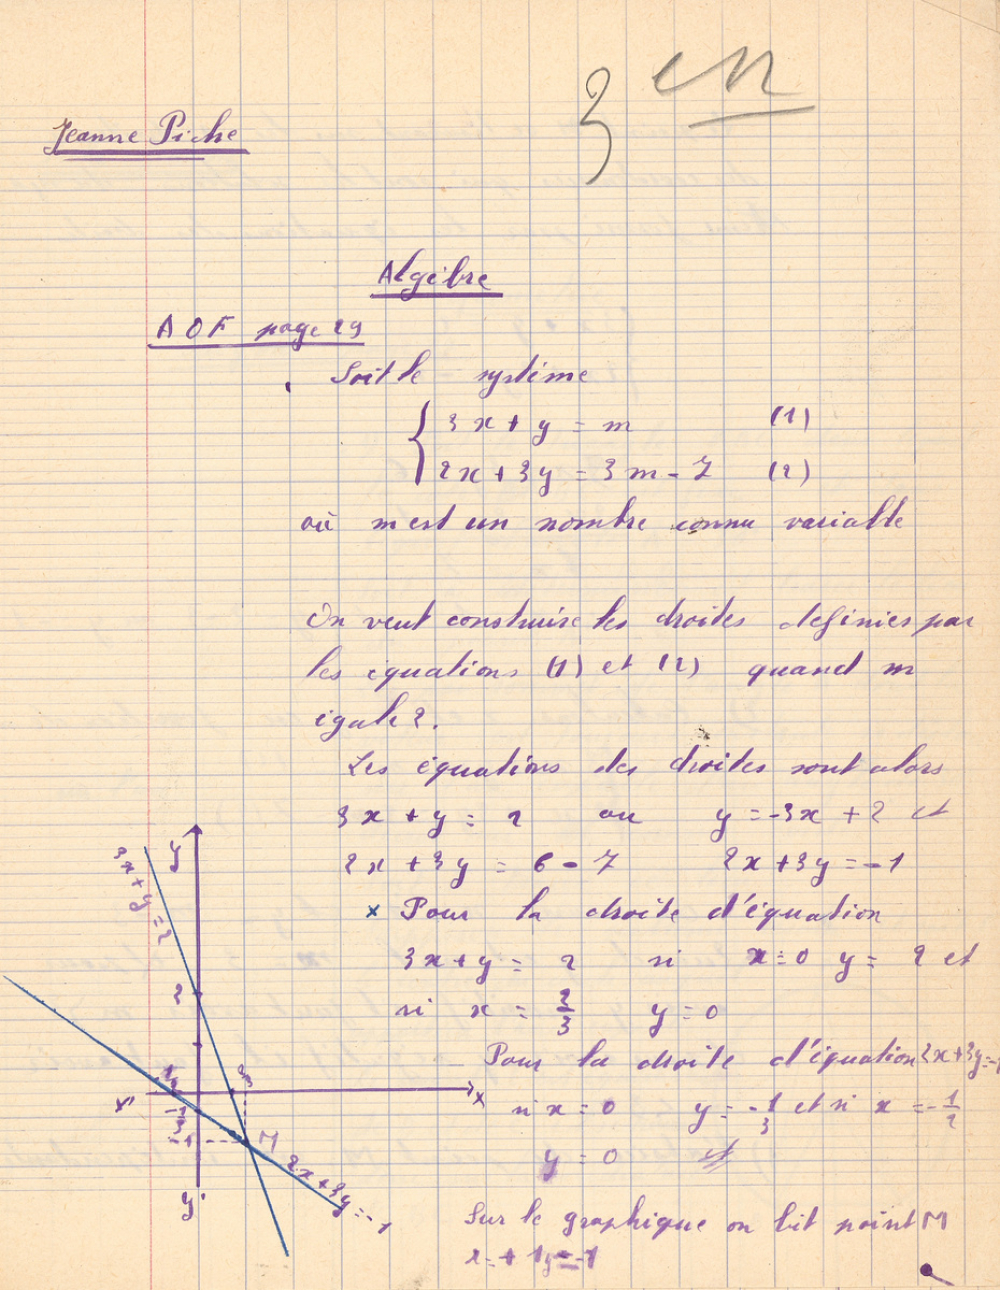 3 en
Jeanne Piche
Algèbre
AOF page 29
Soit le système
{ 3x + y = m (1)
2x + 3y = 3m - 7 (2)
où m est un nombre connu variable
On veut construire les droites definies par
les équations (1) et (2) quand m
égale 2.
Les équations des droites sont alors
3x + y = 2 ou y = -3x + 2 et
2x + 3y = 6 - 7 2x + 3y = -1
x Pour la droite d'équation
3x + y = 2 si x = 0 y = 2 et
si x = 2/3 y = 0
Pour la droite d'équation 2x + 3y = -1
si x = 0 y = -1/3 et si x = -1/2
y = 0
Sur le graphique on lit point M
x = + 1 y = -1
y
3x + y = 2
2
x'
x
-1/3
-1
M
2x + 3y = -1
y'